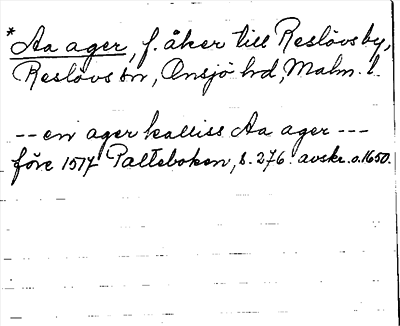 * Aa ager, f. åker till Reslövs by,
Reslövs sn, Onsjö hd, Malm. l.
-- en ager kalliss Aa ager ---
före 1517 Palteboken, s. 276. avskr. o. 1650.